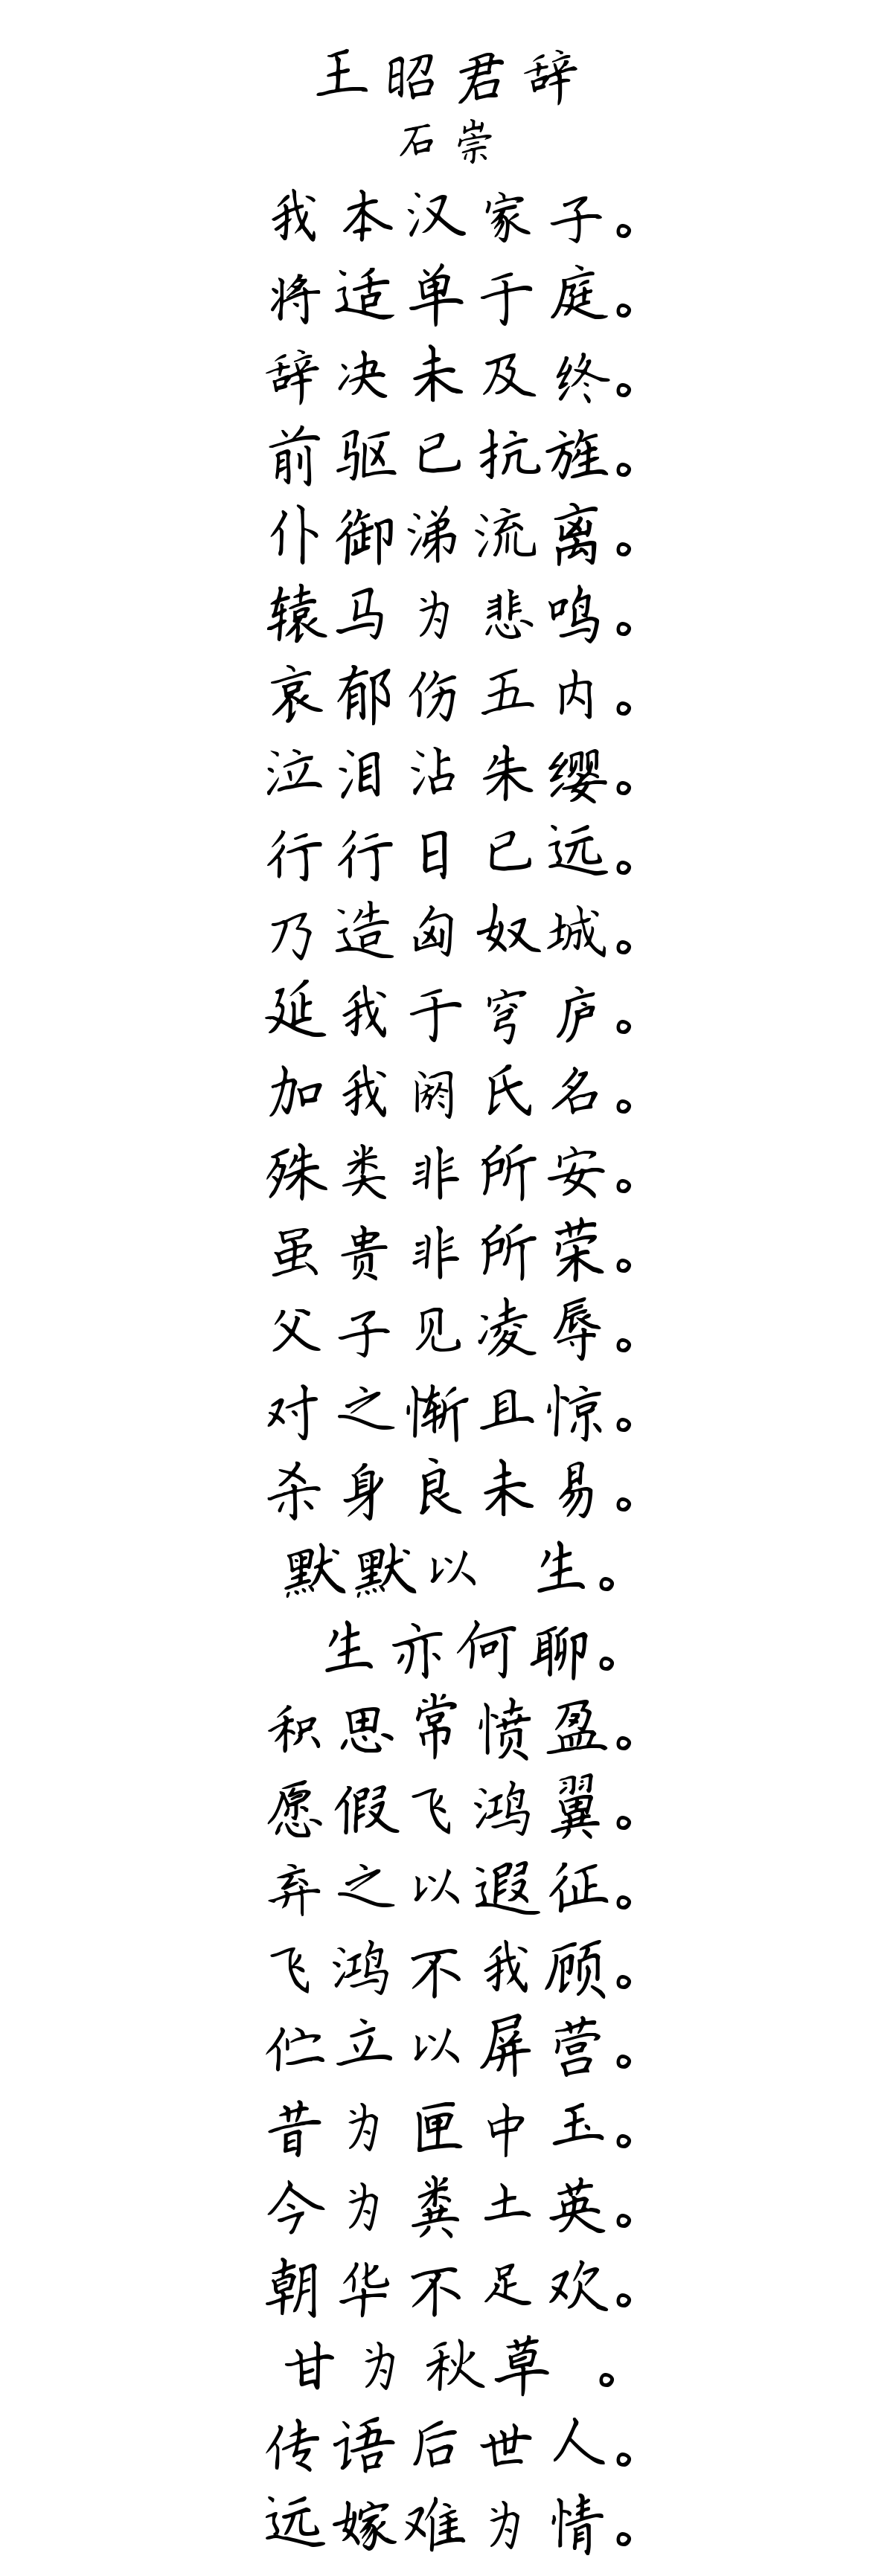 王昭君辞
石崇
我本汉家子。
将适单于庭。
辞决未及终。
前驱已抗旌。
仆御涕流离。
辕马为悲鸣。
哀郁伤五内。
泣泪沾朱缨。
行行日已远。
乃造匈奴城。
延我于穹庐。
加我阏氏名。
殊类非所安。
虽贵非所荣。
父子见凌辱。
对之惭且惊。
杀身良未易。
默默以 生。
生亦何聊。
积思常愤盈。
愿假飞鸿翼。
弃之以遐征。
飞鸿不我顾。
伫立以屏营。
昔为匣中玉。
今为粪土英。
朝华不足欢。
甘为秋草 。
传语后世人。
远嫁难为情。